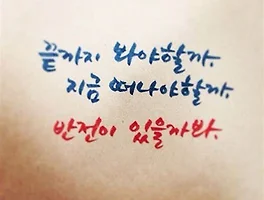 끝까지 봐야할까.
지금 떠나야할까.
반전이 있을까봐.